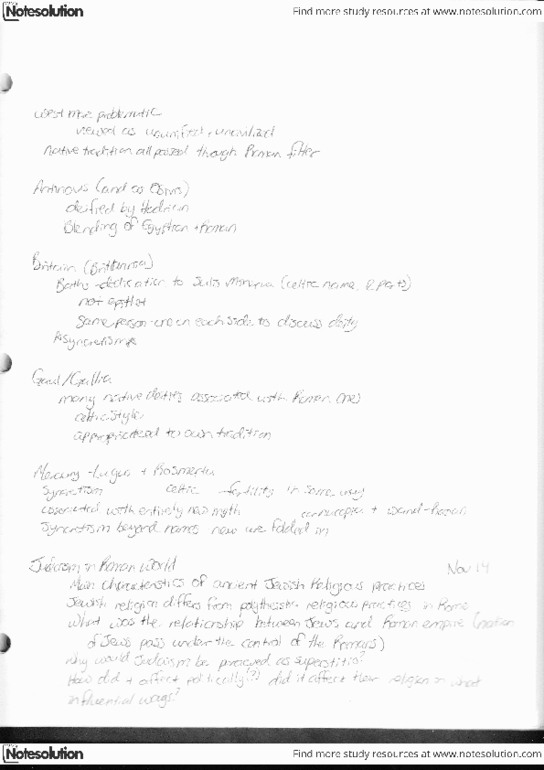 Notesolution
Find more study resources at www.notesolution.com
West more problematic
viewed as ununified, uncivilized
Native tradition all passed through Roman filter
Antinous (and as Osiris)
deified by Hadrian
Blending of Egyptian + Roman
Britain (Britannia)
Baths - dedication to Sulis Minerva (celtic name,
not epithet
Same person - on each side to discuss deity
*Syncretism*
Gaul/Gallia
many native deities associated with Roman ones
celtic style
appropriated to own tradition
Mercury - Lugus + Rosmerta
Syncretism celtic - fertility in some way
associated with entirely new myth cornucopia +
Syncretism beyond names new are folded in
Judaism in Roman World Nov 14
Main characteristics of ancient Jewish Religious practices
Jewish religion differs from polytheistic religious practices in Rome
What was the relationship between Jews and Roman empire (nation
of Jews pass under the control of the Romans)
Why would Judaism be perceived as superstitio?
How did + affect politically(?) did it affect their religion in what
influential ways?
Notesolution
Find more study resources at www.notesolution.com